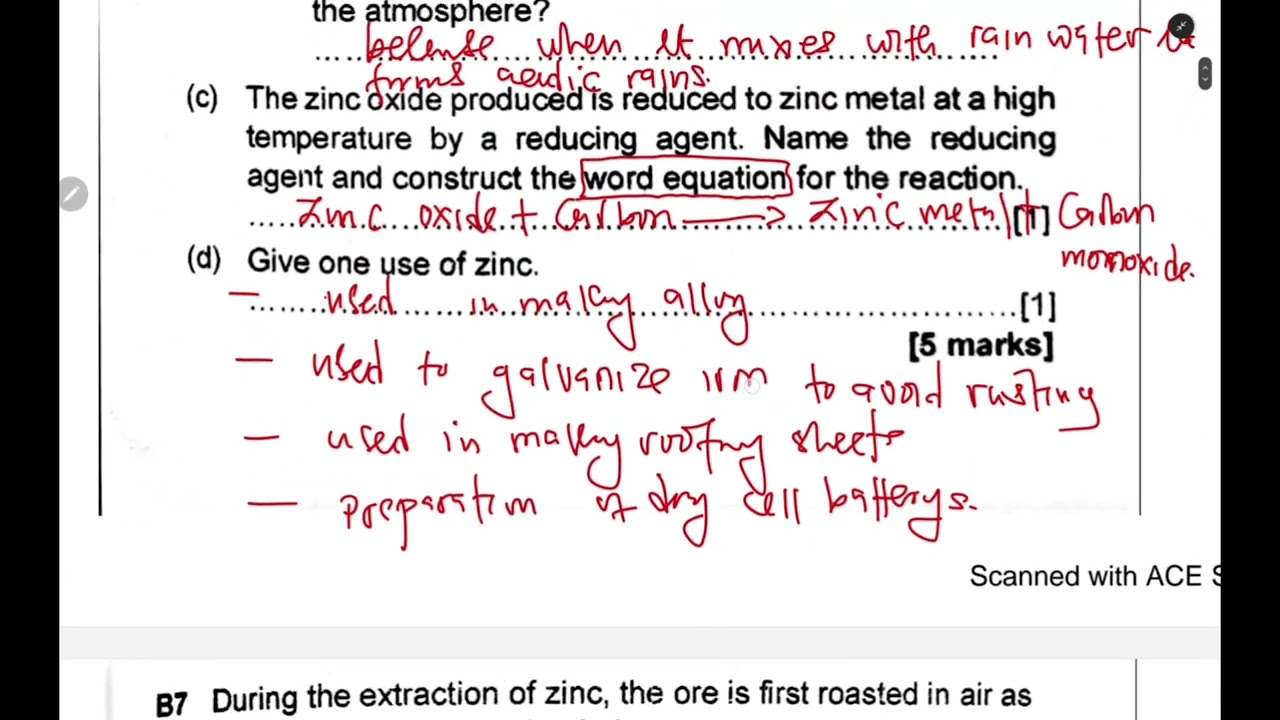 the atmosphere?
when it mixes with rain water
forms acidic rains.
(c) The zinc oxide produced is reduced to zinc metal at a high
temperature by a reducing agent. Name the reducing
agent and construct the word equation for the reaction.
Zinc oxide + Carbon → Zinc metal + Carbon [1]
monoxide.
(d) Give one use of zinc.
— used in making alloy [1]
[5 marks]
— used to galvanize iron to avoid rusting
— used in making roofing sheets
— preparation of dry cell batterys.
Scanned with ACE S
B7 During the extraction of zinc, the ore is first roasted in air as